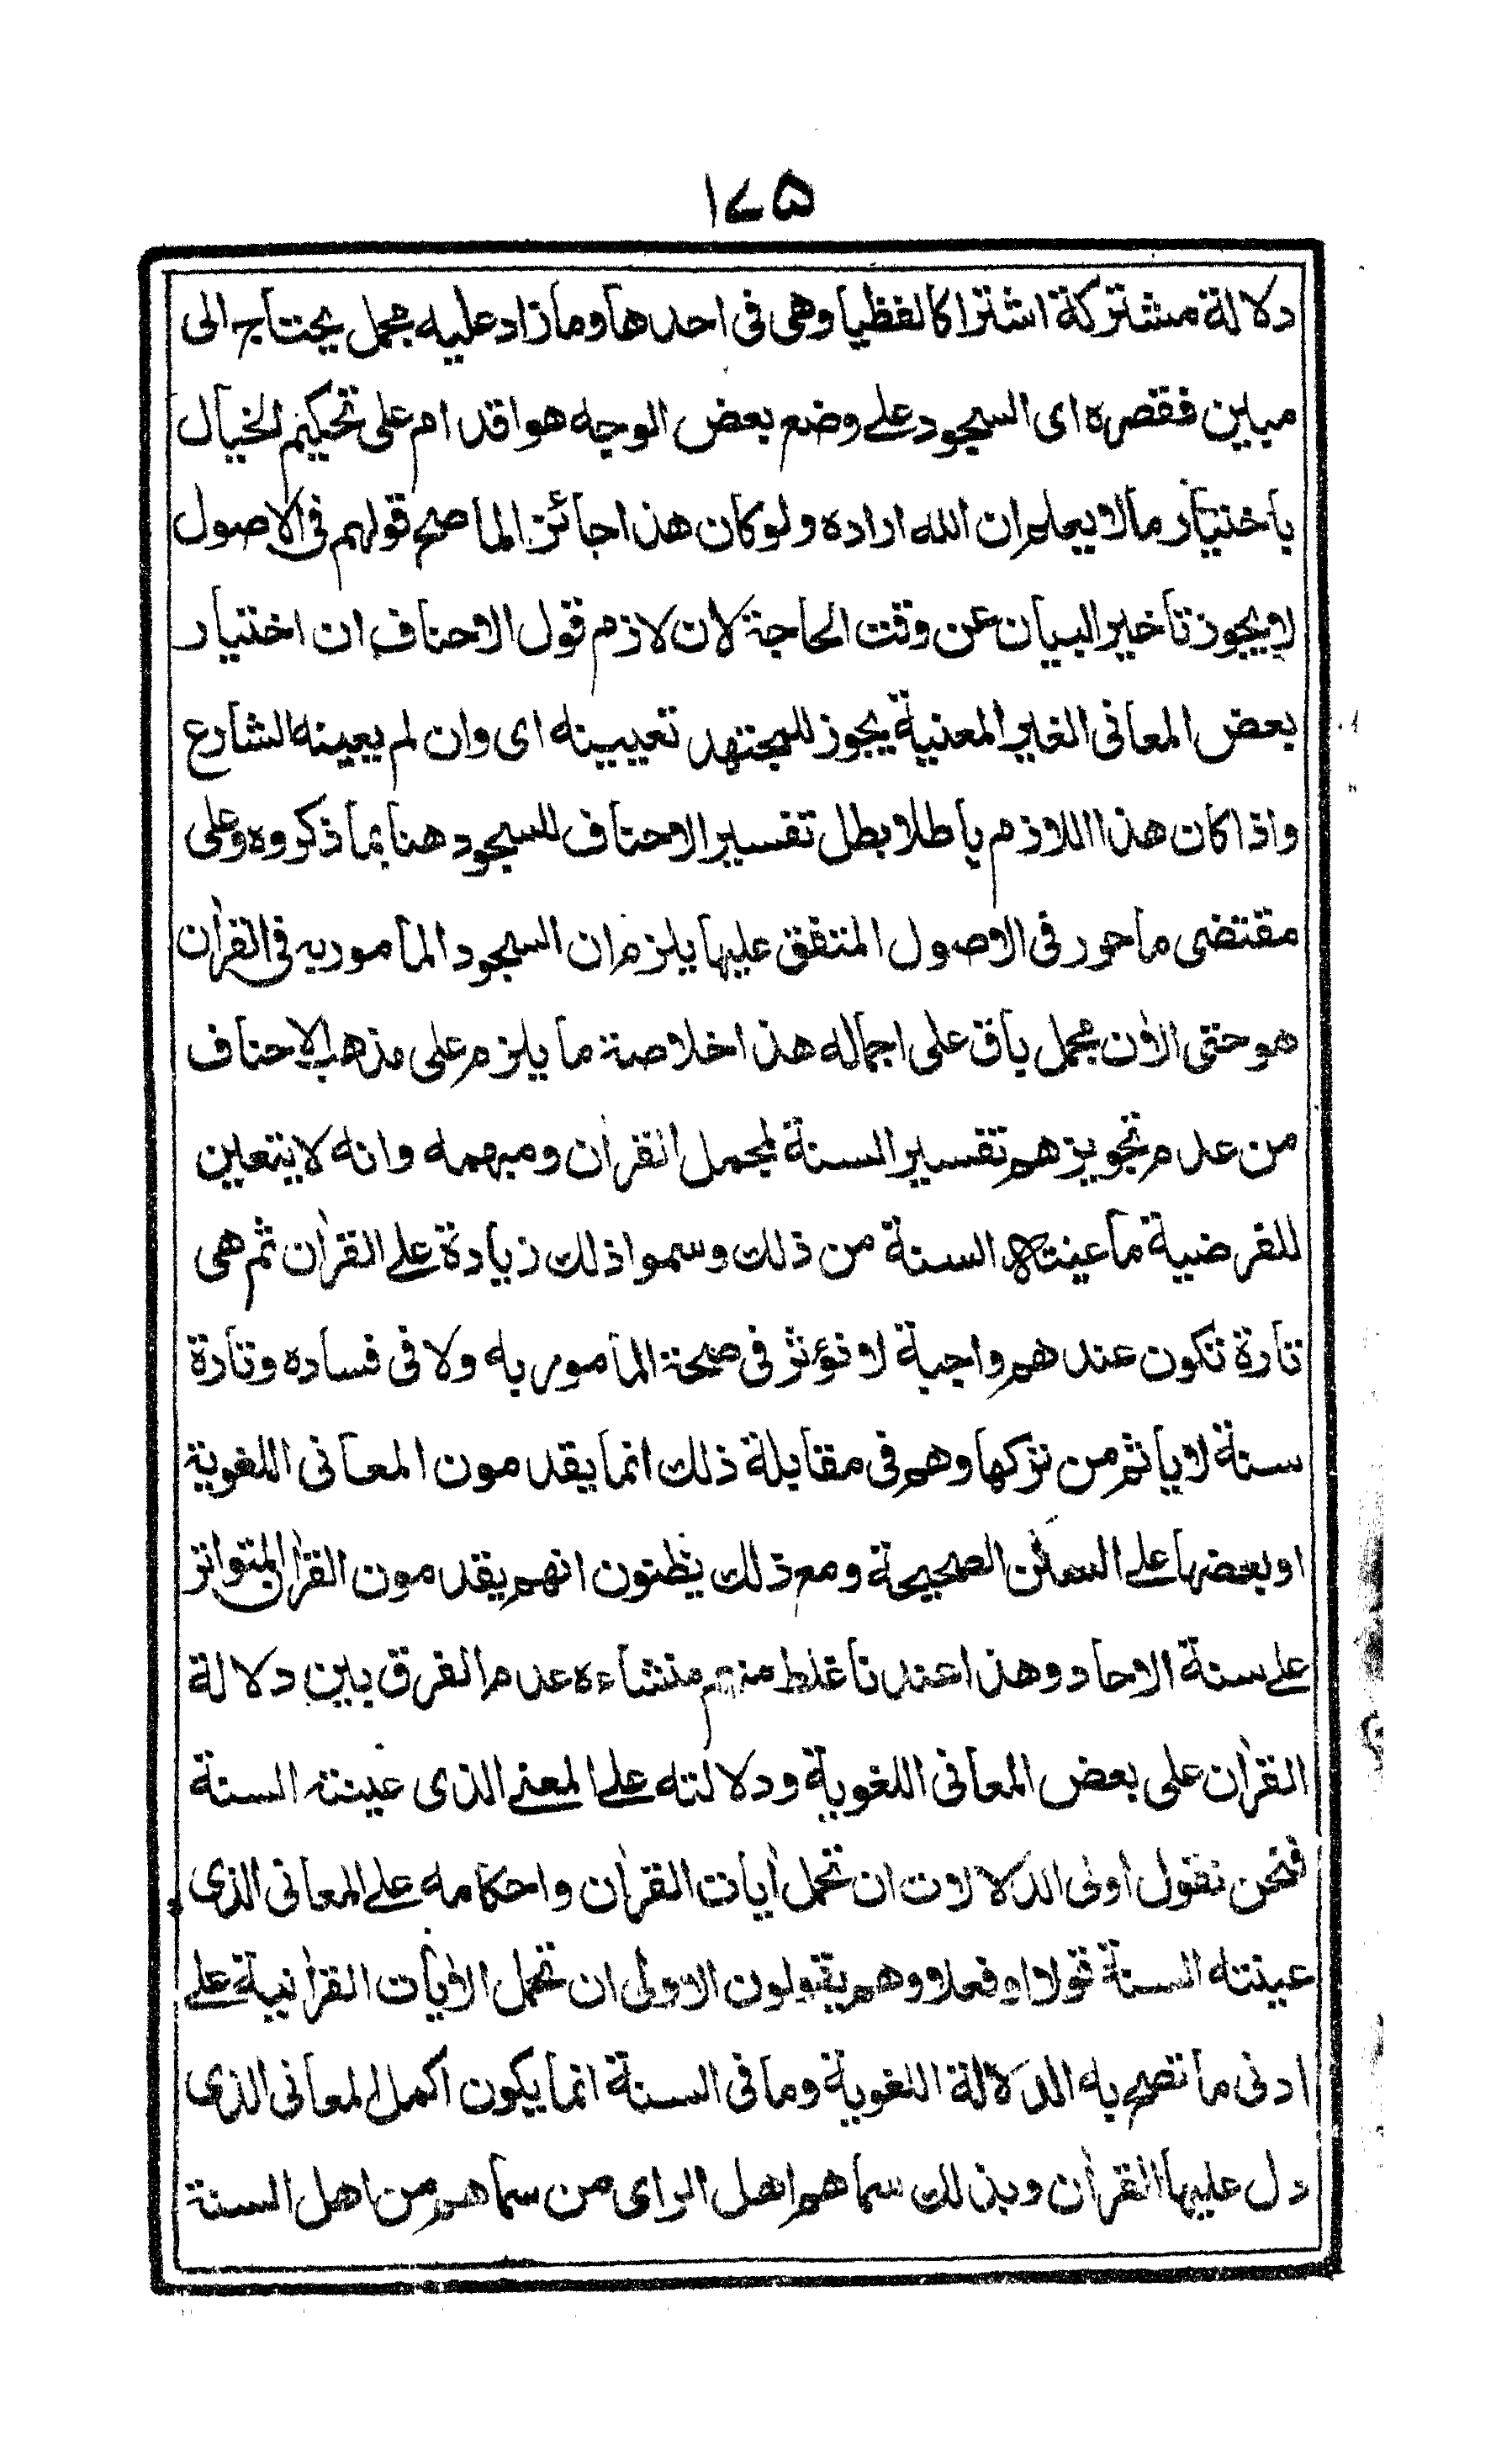 ١٧٥
دلالة مشتركة اشتراكا لفظيا وهى فى احدها وما زاد عليه مجمل يحتاج الى
مبين فقصره اى السجود على وضع بعض الوجه هو اقدام على تحكيم الخيال
باختيار مالا يعلم ان الله اراده ولو كان هذا جائز الما صح قولهم فى الاصول
لا يجوز تاخير البيان عن وقت الحاجة لان لازم قول الاحناف ان اختيار
بعض المعانى الغير المعنية يجوز للمجتهد تعيينه اى وان لم يعينه الشارع
واذا كان هذا اللازم باطلا بطل تفسير الاحناف للسجود هنا بما ذكروه وعلى
مقتضى ما حرر فى الاصول المتفق عليها يلزم ان السجود المامور به فى القرأن
هو حتى الأن مجمل باق على اجماله هذا خلاصة ما يلزم على مذهب الاحناف
من عدم تجويزهم تفسير السنة لمجمل القرأن ومبهمه وانه لا يتعين
للفرضية ما عينته السنة من ذلك وسموا ذلك زيادة على القرأن ثم هى
تارة تكون عندهم واجبة لا تؤثر فى صحة المامور به ولا فى فساده وتارة
سنة لا ياثم من تركها وهم فى مقابلة ذلك انما يقدمون المعانى اللغوية
او بعضها على السنن الصحيحة ومع ذلك يظنون انهم يقدمون القرأن المتواتر
على سنة الاحاد وهذا عندنا غلط منهم منشاءه عدم الفرق بين دلالة
القرأن على بعض المعانى اللغوية ودلالته على المعنى الذى عينته السنة
فنحن نقول اولى الدلالات ان تحمل أيات القرأن واحكامه على المعانى الذى
عينته السنة قولا او فعلا وهم يقولون الاولى ان تحمل الأيات القرأنية على
ادنى ما تصح به الدلالة اللغوية وما فى السنة انما يكون اكمل المعانى الذى
دل عليها القرأن وبذلك سماهم اهل الراى من سماهم من اهل السنة